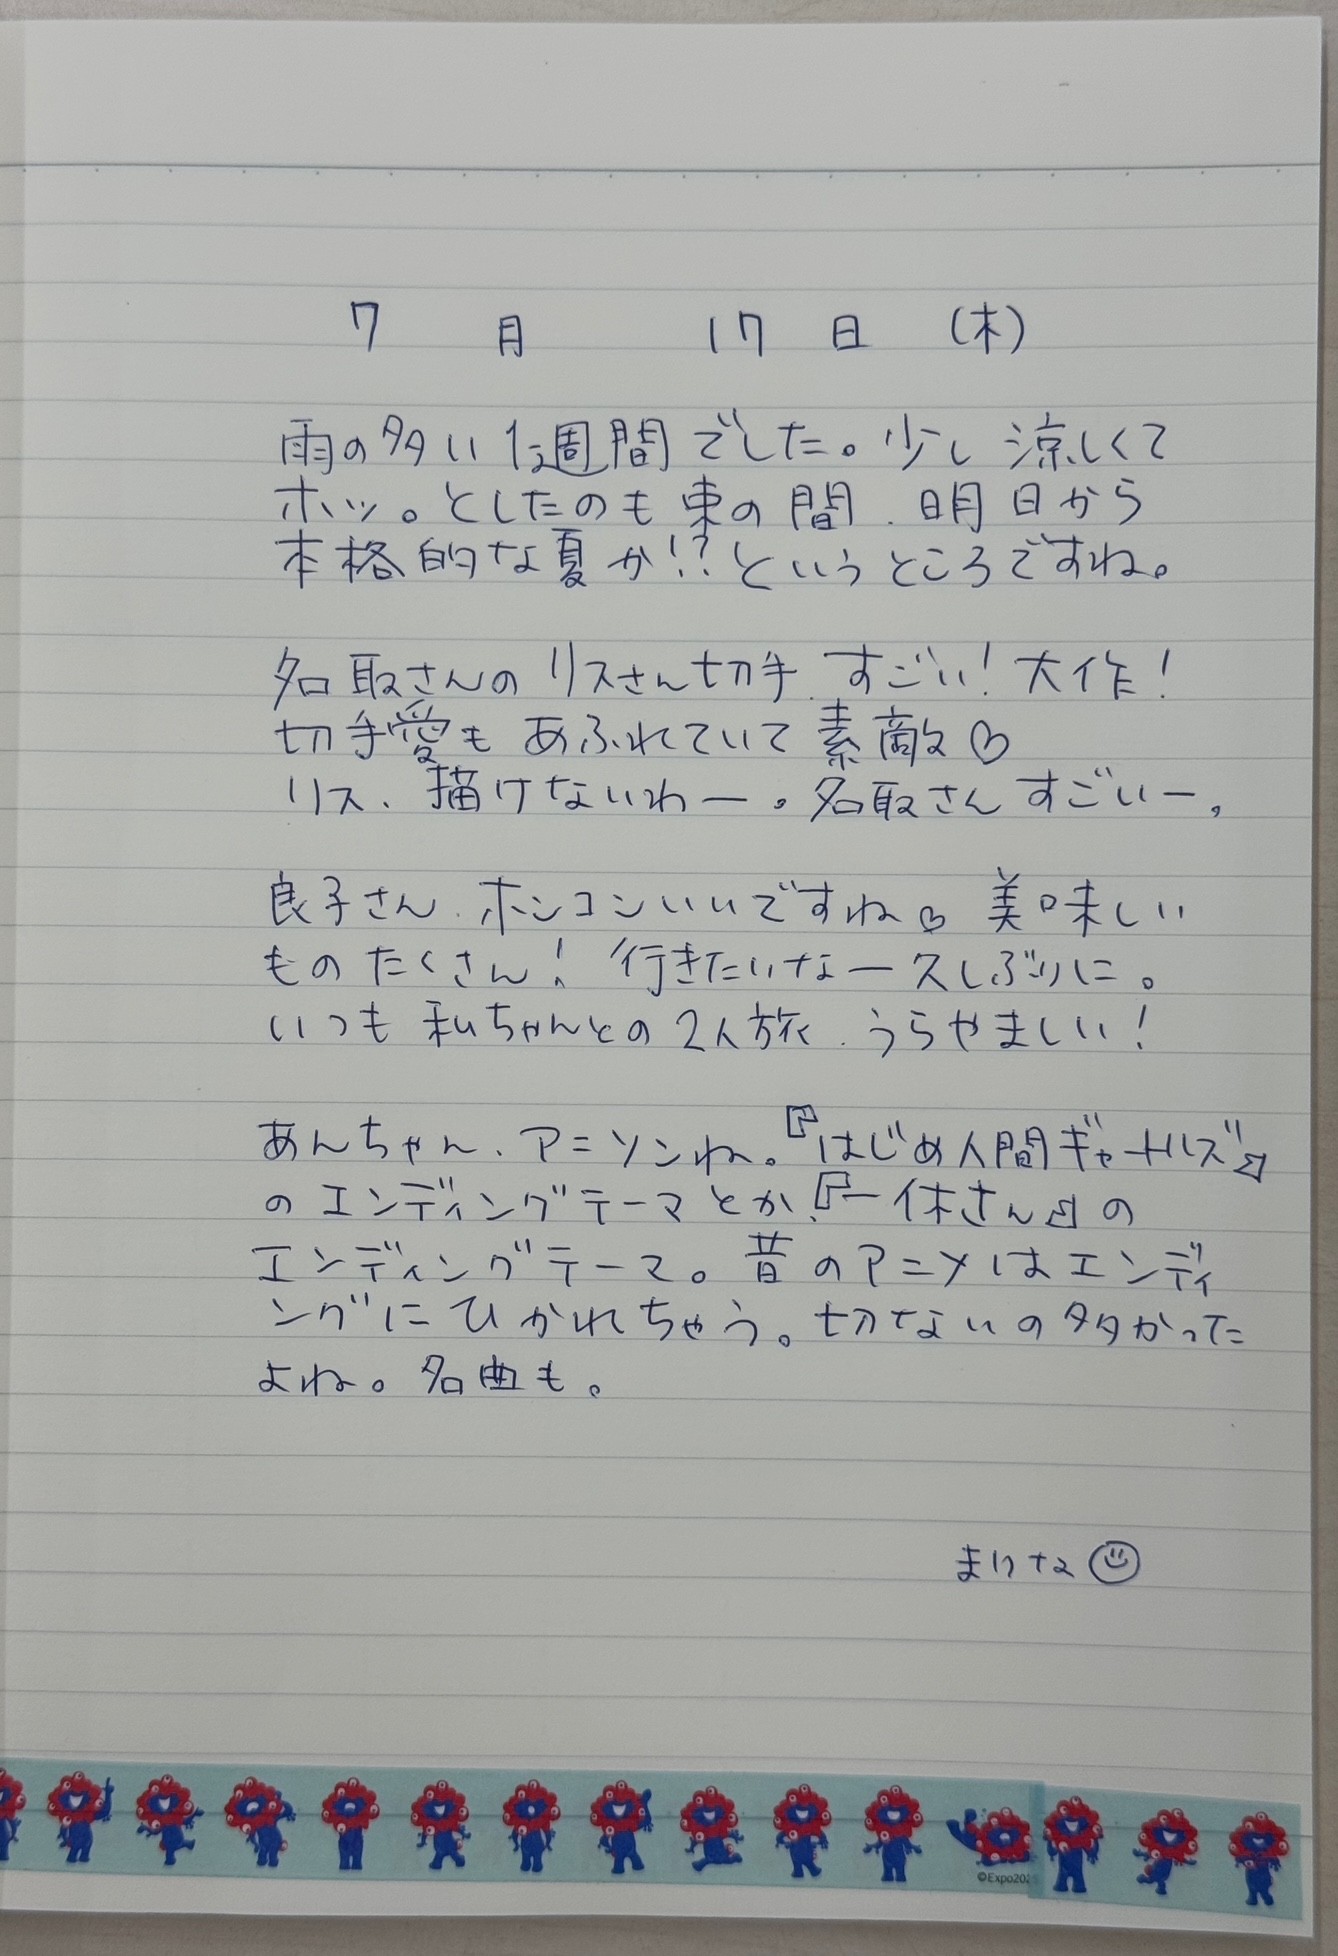 7月 17日 (木)
雨の多い1週間でした。少し涼しくて
ホッ。としたのも束の間、明日から
本格的な夏か!?というところですね。
名取さんのリスさん切手、すごい!大作!
切手愛もあふれていて素敵♡
リス、描けないわー。名取さんすごいー。
良子さん、ホンコンいいですね♡ 美味しい
ものたくさん!行きたいなー久しぶりに。
いつも私ちゃんとの2人旅、うらやましい!
あんちゃん、アニソンね。『はじめ人間ギャートルズ』
のエンディングテーマとか、『一休さん』の
エンディングテーマ。昔のアニメはエンディ
ングにひかれちゃう。切ないの多かった
よね。名曲も。
まりな
©Expo202